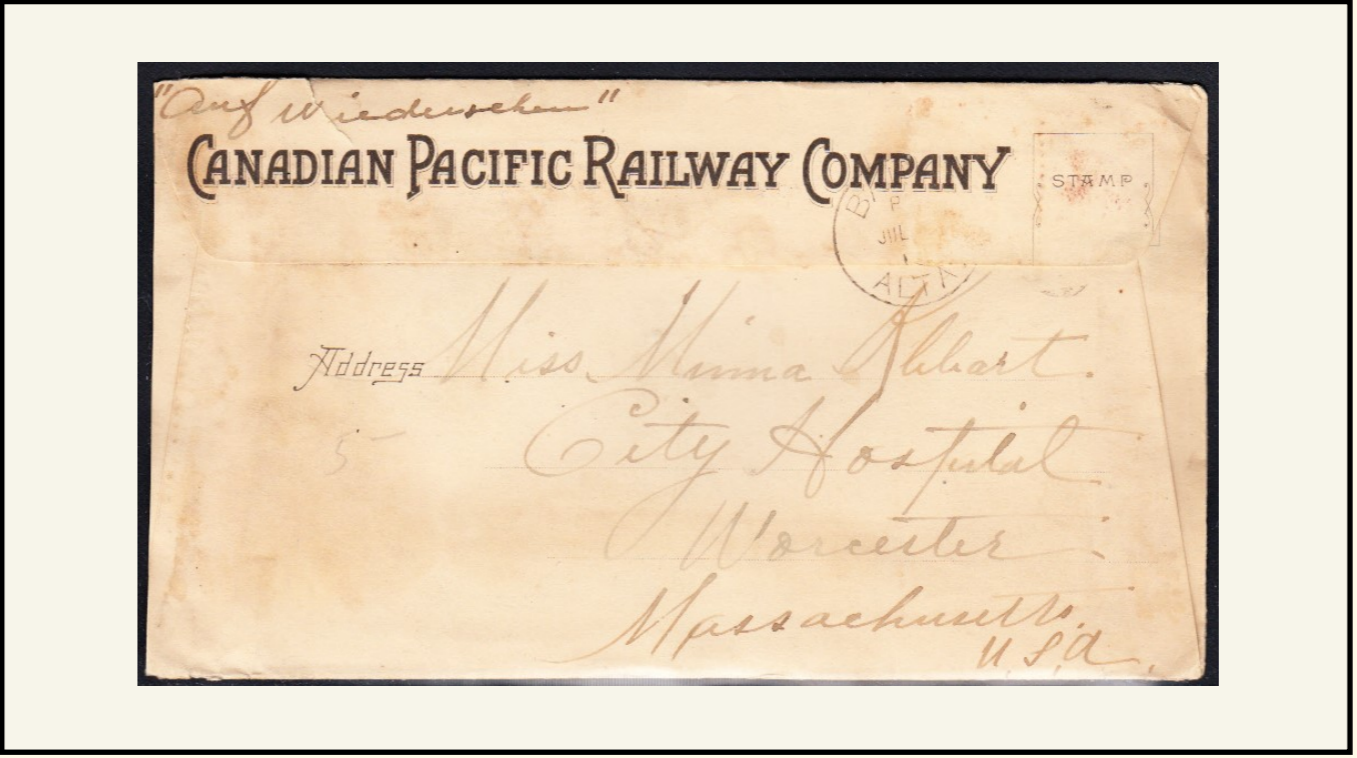 "Auf Wiedersehen"
CANADIAN PACIFIC RAILWAY COMPANY
STAMP
P
JUL
ALTA
Address Miss. Minna
5
City Hospital
Worcester
Massachusetts.
U.S.A.